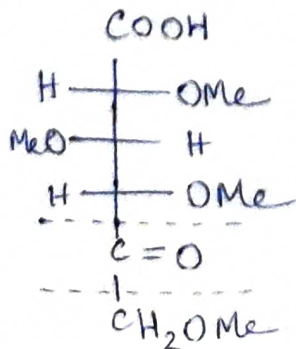 COOH
H OMe
MeO H
H OMe
C = O
CH₂OMe